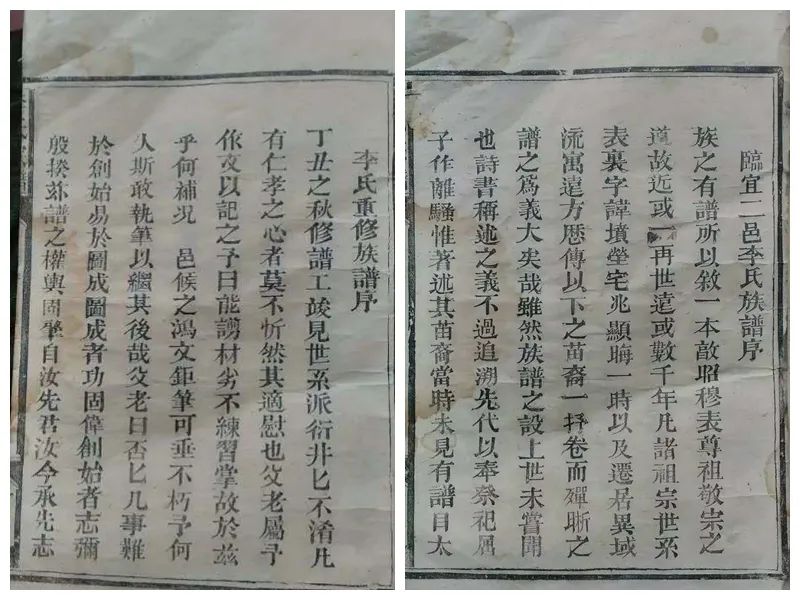 臨宜二邑李氏族譜序
族之有譜所以敘一本敵昭穆表尊祖敬宗之
道故近或一再世遠或數千年凡諸祖宗世系
表裏字諱墳塋宅兆顯晦一時以及遷居異域
流寓遠方歷傳以下之苗裔一抒卷而殫晰之
譜之爲義大矣哉雖然族譜之設上世未嘗聞
也詩書稱述之義不過追溯先代以奉祭祀屈
子作離騷惟著述其苗裔當時未見有譜自太
李氏重修族譜序
丁丑之秋修譜工竣見世系派衍井匕不淆凡
有仁孝之心者莫不忻然其適慰也父老屬予
依文以記之予曰能謭材劣不練習掌故於茲
乎何補况 邑候之鴻文鉅筆可垂不朽予何
人斯敢執筆以繼其後哉父老曰否匕凡事難
於創始易於圖成圖成者功固偉創始者志彌
殷揆茲譜之權輿固肇自汝先君汝今承先志